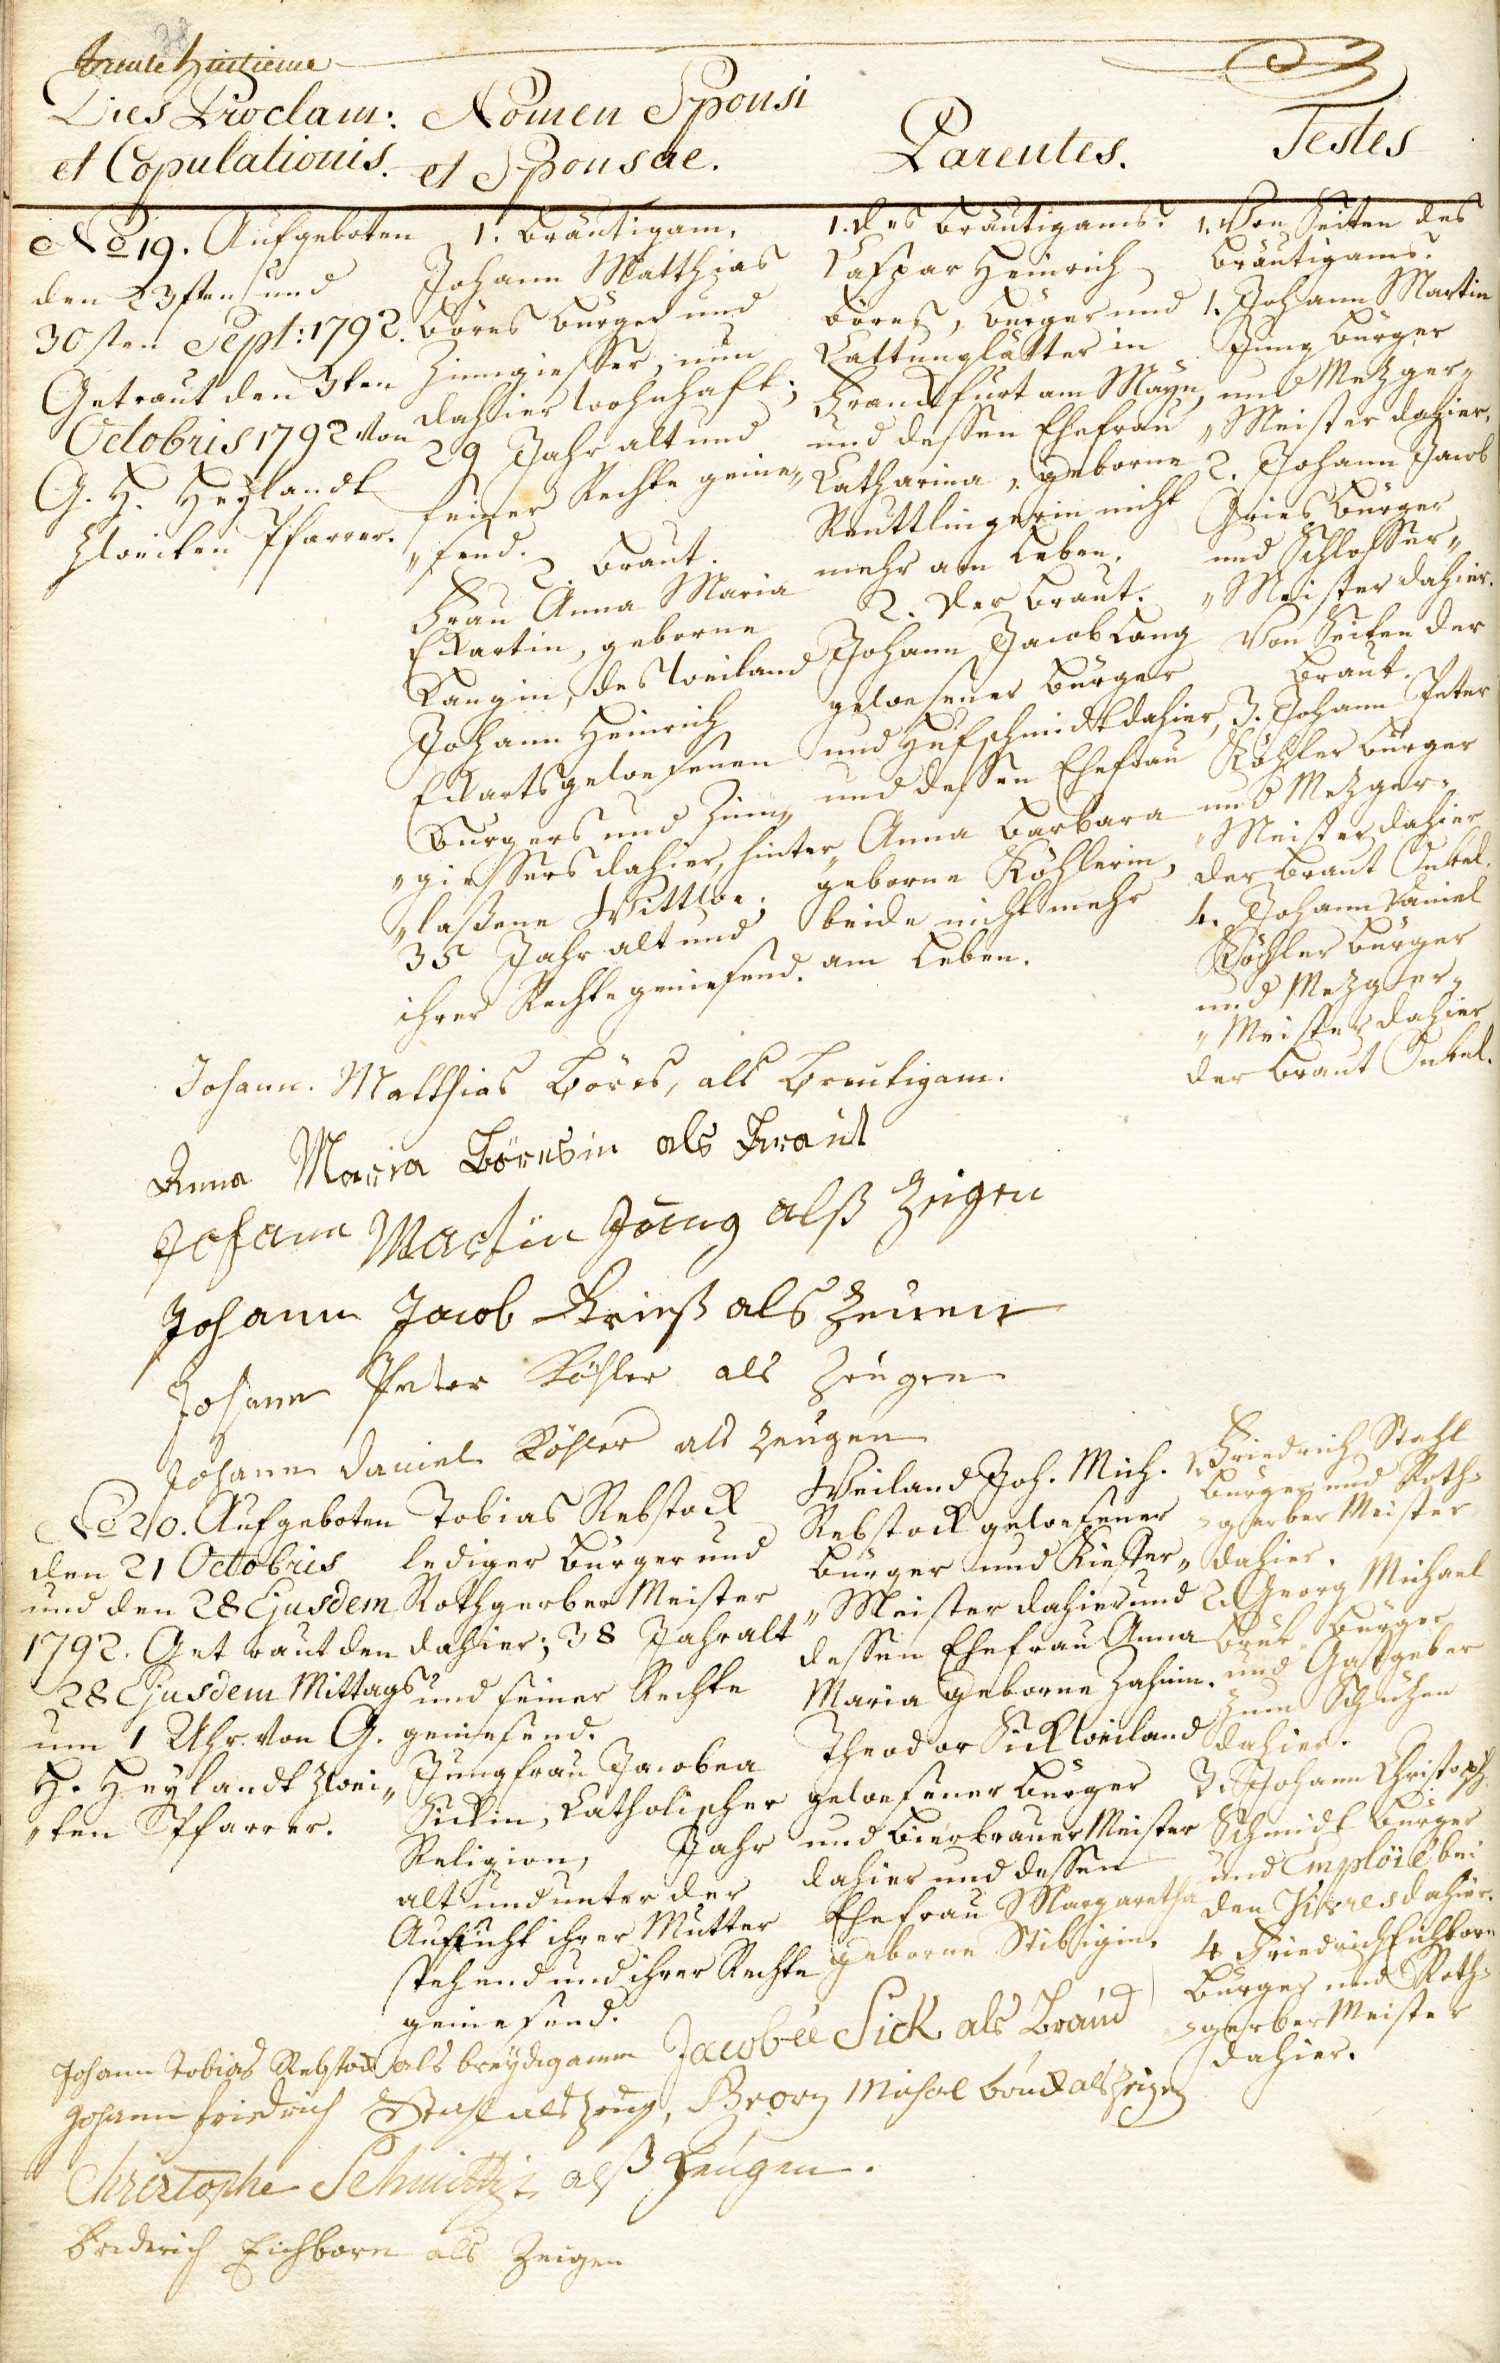 38
trente huitieme
Dies Proclam:
et Copulationis.
Nomen Sponsi
et Sponsae.
Parentes.
Testes
No 19. Aufgeboten
den 23sten und
30sten Sept: 1792.
Getraut den 3ten
Octobris 1792 von
G. H. Heylandt
Zweiten Pfarrer.
1. Bräutigam.
Johann Matthias
Böres Bürger und
Zinngiesser, nun
dahier wohnhaft;
29 Jahr alt und
seiner Rechte genie„
„send. 2. Braut.
Frau Anna Maria
Eckartin, geborne
Langin, des weiland
Johann Heinrich
Eckarts gewesenen
Burgers und Zinn„
„giessers dahier, hinter„
„laßene Wittwe;
35 Jahr alt und
ihrer Rechte geniesend.
1. Des Bräutigams.
Caspar Heinrich
Böres, Bürger und
Cattunglätter in
Franckfurt am Mayn,
und dessen Ehefrau
Catharina, geborne
Reuttlingerin nicht
mehr am Leben.
2. Der Braut.
Johann Jacob Lang
gewesener Bürger
und Hufschmidt dahier,
und dessen Ehefrau
Anna Barbara
geborne Köhlerin,
beide nicht mehr
am Leben.
1. Von Seiten des
Bräutigams.
1. Johann Martin
Jung Bürger
und Mezger„
„Meister dahier.
2. Johann Jacob
Gries Bürger
und Schlosser„
„Meister dahier.
Von Seiten der
Braut.
3. Johann Peter
Köhler Bürger
und Mezger„
„Meister dahier
der Braut Onkel.
4. Johann Daniel
Köhler Bürger
und Mezger„
„Meister dahier
der Braut Onkel.
Johann. Matthias Böres, als Breutigam.
Anna Maria Böresin als Braut
Johann Martin Jung alß Zeigen
Johann Jacob Krieß als Zeuen
Johann Peter Köhler als Zeugen
Johann Daniel Köhler als Zeugen
No 20. Aufgeboten
den 21 Octobris
und den 28 Ejusdem
1792. Getraut den
28 Ejusdem Mittags
um 1 Uhr von G.
H. Heylandt zwei„
„ten Pfarrer.
Tobias Rebstock
lediger Bürger und
Rothgerber Meister
dahier; 38 Jahr alt
und seiner Rechte
geniesend.
Jungfrau Jacobea
Sickin, Catholischer
Religion, Jahr
alt und unter der
Aufsicht ihrer Mutter
stehend und ihrer Rechte
geniesend.
Weiland Joh. Mich.
Rebstock gewesener
Bürger und Kiefer„
„Meister dahier und
dessen Ehefrau Anna
Maria geborne Zahnin.
Theodor Sick weiland
gewesener Bürger
und Bierbrauer Meister
dahier und dessen
Ehefrau Margaretha
geborne Stibigin.
1. Friedrich Stahl
Bürger und Roth=
=gerber Meister
dahier.
2. Georg Michael
Bruk Bürger
und Gastgeber
zum Schützen
dahier.
3. Johann Christoph
Schmidt Bürger
und Emploié bei
den Vivres dahier.
4 Friedrich Eichborn
Bürger und Roth=
=gerber Meister
dahier.
Johann Tobias Rebstock als breydigamm Jacobee Sick als Braud
Johann Friedrich Stahl als Zeug, Georg Michel Bruck als Zeigen
Christophe Schmidt alß Zeugen.
Friderich Eichborn als Zeigen